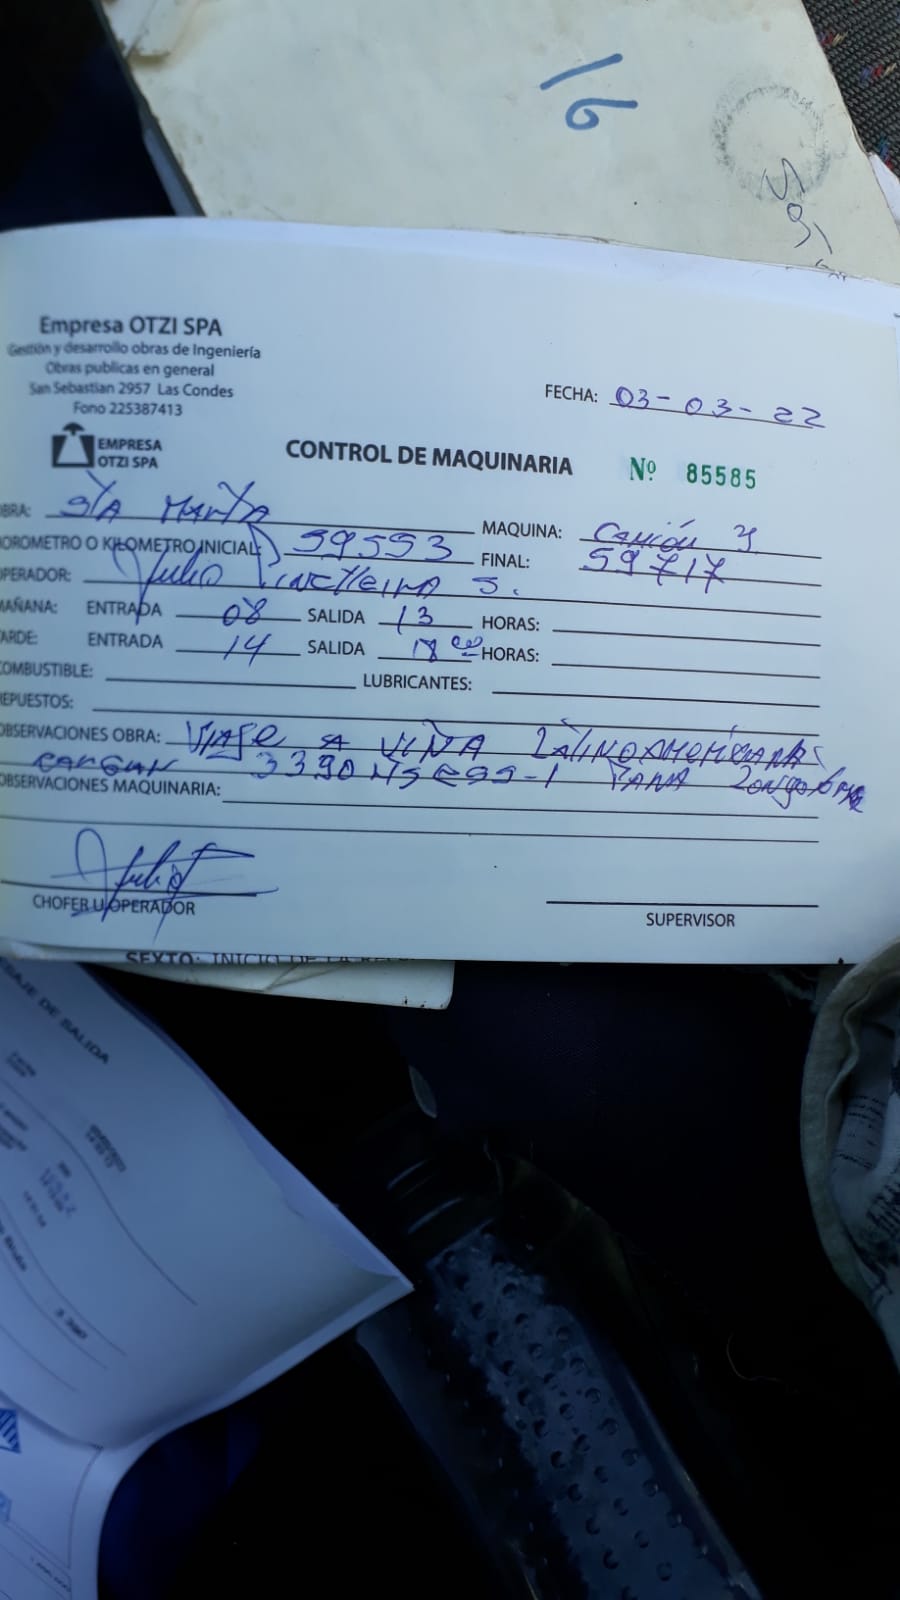 16
Empresa OTZI SPA
Gestión y desarrollo obras de Ingeniería
Obras publicas en general
San Sebastian 2957 Las Condes
Fono 225387413
FECHA: 03-03-22
EMPRESA
OTZI SPA
CONTROL DE MAQUINARIA Nº 85585
BRA: S/A MARTA MAQUINA: CAMIÓN
OROMETRO O KILOMETRO INICIAL: 59553 FINAL: 59717
PERADOR: Julio S.
MAÑANA: ENTRADA 08 SALIDA 13 HORAS:
ARDE: ENTRADA 14 SALIDA 18 00 HORAS:
COMBUSTIBLE: LUBRICANTES:
REPUESTOS:
OBSERVACIONES OBRA: VIAJE A VIÑA LATINOAMERICANA
CARGAR 3390 PARA
OBSERVACIONES MAQUINARIA:
CHOFER U OPERADOR SUPERVISOR
SEXTO: INICIO DE LA
AJE DE SALIDA